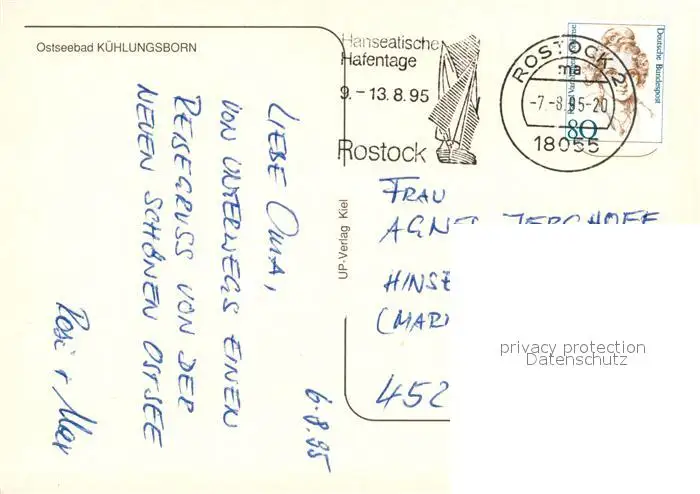 Ostseebad KÜHLUNGSBORN
Hanseatische
Hafentage
9.-13.8.95
Rostock
ROSTOCK 2
ma
-7.-8.95-20
18055
Deutsche Bundespost
80
LIEBE OMA,
VON UNTERWEGS EINEN
REISEGRUSS VON DER
NEUEN SCHÖNEN OSTSEE
6.8.95
UP-Verlag Kiel
FRAU
452
privacy protection
Datenschutz